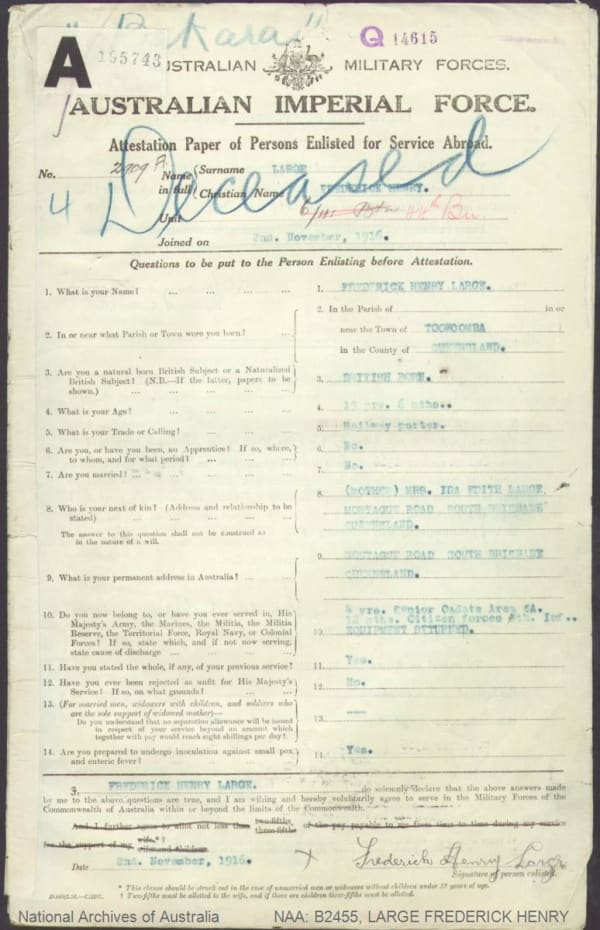 Q 14615
A 195743
AUSTRALIAN MILITARY FORCES.
AUSTRALIAN IMPERIAL FORCE.
Attestation Paper of Persons Enlisted for Service Abroad.
Deceased
No. 2909 A. Name in full { Surname LARGE
Christian Name FREDERICK HENRY.
4
Unit 6/ Btn 44th Bn
Joined on 2nd. November, 1916.
Questions to be put to the Person Enlisting before Attestation.
1. What is your Name? ... ... ... ... 1. FREDERICK HENRY LARGE.
2. In or near what Parish or Town were you born? ... 2. In the Parish of in or
near the Town of TOOWOOMBA
in the County of QUEENSLAND.
3. Are you a natural born British Subject or a Naturalized
British Subject? (N.B.—If the latter, papers to be
shown.) ... ... ... ... 3. BRITISH BORN.
4. What is your Age? ... ... ... 4. yrs. 6 mths.
5. What is your Trade or Calling? ... ... 5. Railway porter.
6. Are you, or have you been, an Apprentice? If so, where,
to whom, and for what period? ... ... ... 6. No.
7. Are you married? ... ... 7. No.
8. Who is your next of kin? (Address and relationship to be
stated) ... ... ... 8. (MOTHER) MRS. IDA EDITH LARGE,
MONTAGUE ROAD SOUTH BRISBANE
QUEENSLAND.
The answer to this question shall not be construed as
in the nature of a will.
9. What is your permanent address in Australia? ... 9. MONTAGUE ROAD SOUTH BRISBANE
QUEENSLAND.
10. Do you now belong to, or have you ever served in, His
Majesty's Army, the Marines, the Militia, the Militia
Reserve, the Territorial Force, Royal Navy, or Colonial
Forces? If so, state which, and if not now serving,
state cause of discharge ... ... ... 10. 4 yrs. Senior Cadets Area 6A.
mths. Citizen forces Inf.
EQUIPMENT RETURNED.
11. Have you stated the whole, if any, of your previous service? 11. Yes.
12. Have you ever been rejected as unfit for His Majesty's
Service? If so, on what grounds? ... ... 12. No.
13. (For married men, widowers with children, and soldiers who
are the sole support of widowed mother)—
Do you understand that no separation allowance will be issued
in respect of your service beyond an amount which
together with pay would reach eight shillings per day? 13. —
14. Are you prepared to undergo inoculation against small pox
and enteric fever? ... ... ... 14. Yes.
3. FREDERICK HENRY LARGE. do solemnly declare that the above answers made
by me to the above questions are true, and I am willing and hereby voluntarily agree to serve in the Military Forces of the
Commonwealth of Australia within or beyond the limits of the Commonwealth.
And I further agree to allot not less than two-fifths three-fifths of the pay payable to me from time to time during my service
for the support of my wife.* † wife and children
Date 2nd. November, 1916. x Frederick Henry Large
Signature of person enlisted.
* This clause should be struck out in the case of unmarried men or widowers without children under 18 years of age.
† Two-fifths must be allotted to the wife, and if there are children three-fifths must be allotted.
National Archives of Australia NAA: B2455, LARGE FREDERICK HENRY